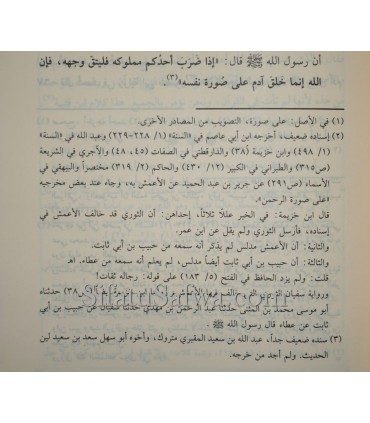 أن رسول الله ﷺ قال: «إذا ضَرَبَ أحدُكم مملوكه فليتقِ وجهه، فإن
الله إنما خَلقَ آدم على صُورة نفسه»(٣).
(١) في الأصل: على صورة، التصويب من المصادر الأخرى.
(٢) إسناده ضعيف، أخرجه ابن أبي عاصم في «السنة» (١/ ٢٢٨-٢٢٩) وعبد الله في «السنة»
(١/ ٤٩٨) وابن خزيمة (ص٣٨) والدارقطني في الصفات (٤٥، ٤٨) والآجري في الشريعة
(ص٣١٥) والطبراني في الكبير (١٢/ ٤٣٠) والحاكم (٢/ ٣١٩) مختصراً والبيهقي في
الأسماء (ص٢٩١) عن جرير بن عبد الحميد عن الأعمش به، وجاء عند بعض مخرجيه
«على صورة الرحمن».
قال ابن خزيمة: في الخبر عللاً ثلاثاً، إحداهن: أن الثوري قد خالف الأعمش في
إسناده، فأرسل الثوري ولم يقل عن ابن عمر.
والثانية: أن الأعمش مدلس لم يذكر أنه سمعه من حبيب بن أبي ثابت.
والثالثة: أن حبيب بن أبي ثابت أيضاً مدلس، لم يعلم أنه سمعه من عطاء. اهـ
قلت: ولم يزد الحافظ في الفتح (٥/ ١٨٣) على قوله: رجاله ثقات!
ورواية سفيان الثوري التي خالف فيها الأعمش (ص٣٨) حدثنا
أبو موسى محمد بن المثنى حدثنا عبد الرحمن بن مهدي حدثنا سفيان عن حبيب بن أبي
ثابت عن عطاء قال رسول الله ﷺ.
(٣) سنده ضعيف جداً، عبد الله بن سعيد المقبري متروك، وأخوه أبو سهل سعد بن سعيد لين
الحديث. ولم أجد من خرجه.